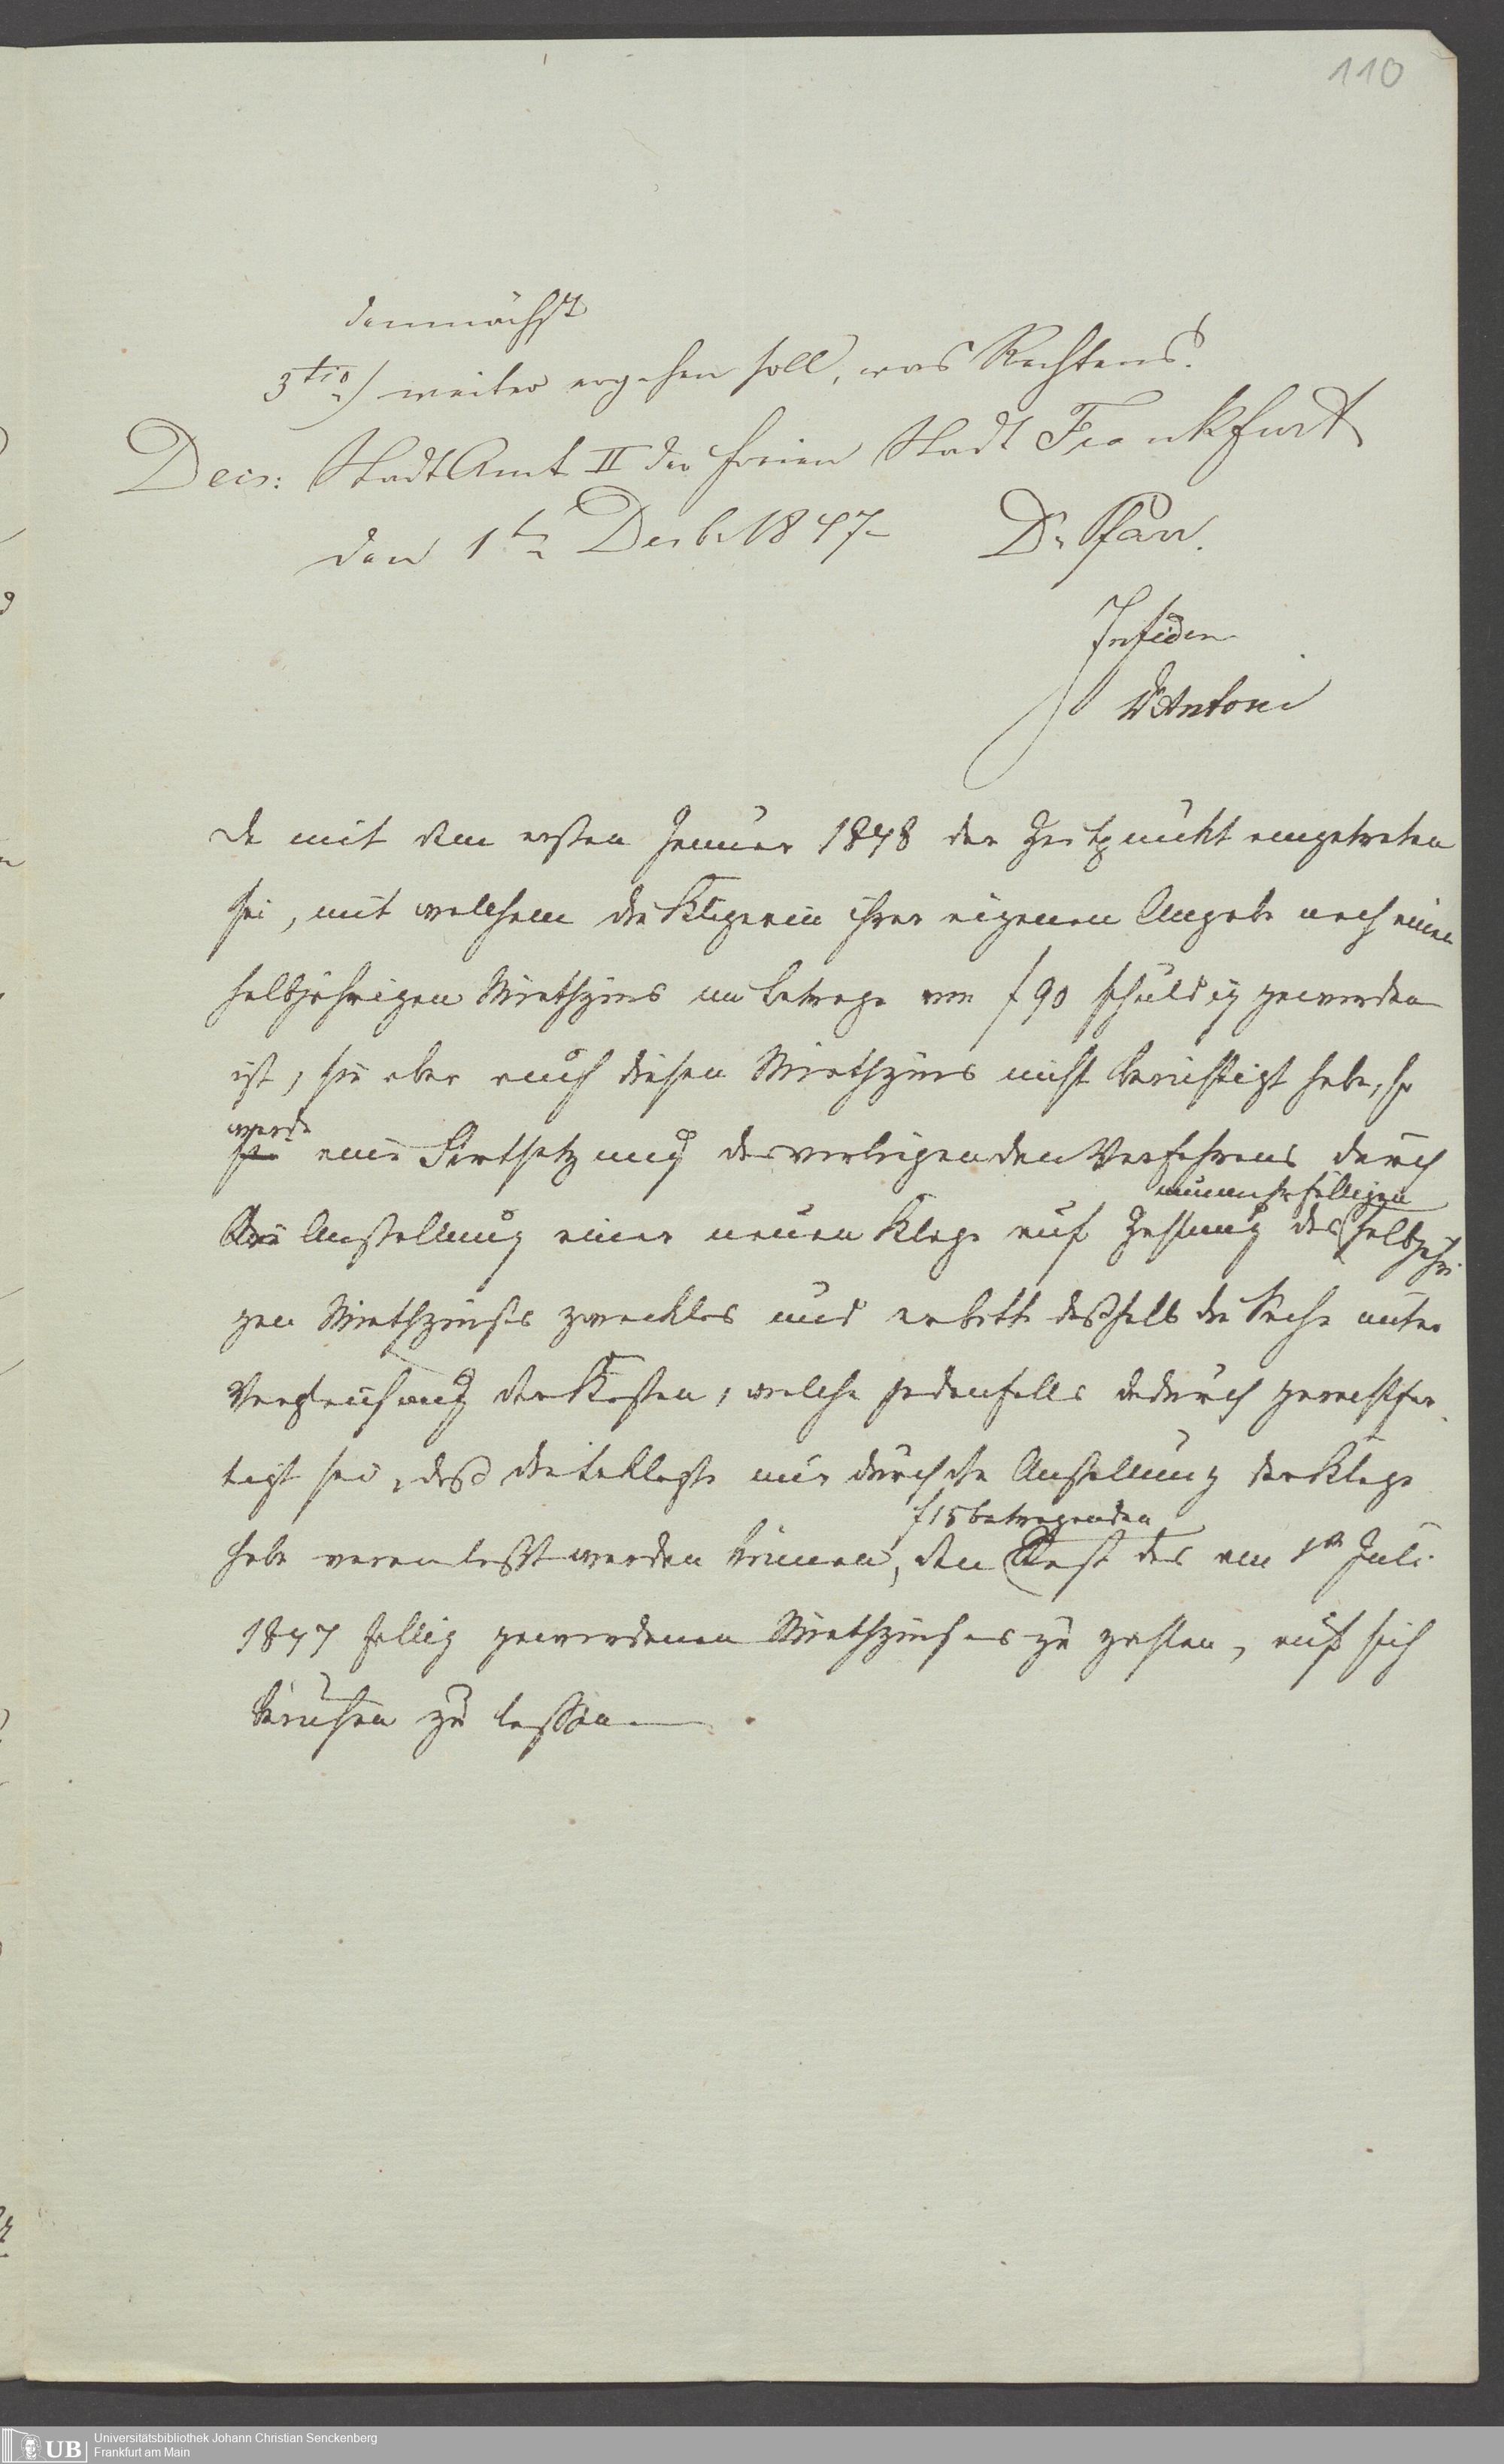 110
demnächst
3tio) weiter ergehen soll, was Rechtens.
Decr: StadtAmt II der freien Stadt Frankfurt
den 1ten Decb. 1847
Dr Pfarr.
In fidem
Dr Antoni
Da mit dem ersten Januar 1848 der Zeitpunkt eingetreten
sei, mit welchem die Klägerin ihrer eigenen Angabe nach einen
halbjährigen Miethzins im Betrage von f 90 schuldig geworden
ist, sie aber auch diesen Miethzins nicht berichtigt habe, so
werde
sei eine Fortsetzung des vorliegenden Verfahrens durch
nunmehr fälligen
die Anstellung einer neuen Klage auf Zahlung des halbjähri
gen Miethzinses zwecklos und erbitte deßhalb die Sache unter
Vergleichung der Kosten, welche jedenfalls dadurch gerechtfer
tigt sei, daß die Beklagte nur durch die Anstellung der Klage
f 15 betragenden
habe veranlaßt werden können, den Rest des am 1ten Juli
1847 fällig gewordenen Miethzinses zu zahlen, auf sich
beruhen zu lassen
UB
Universitätsbibliothek Johann Christian Senckenberg
Frankfurt am Main